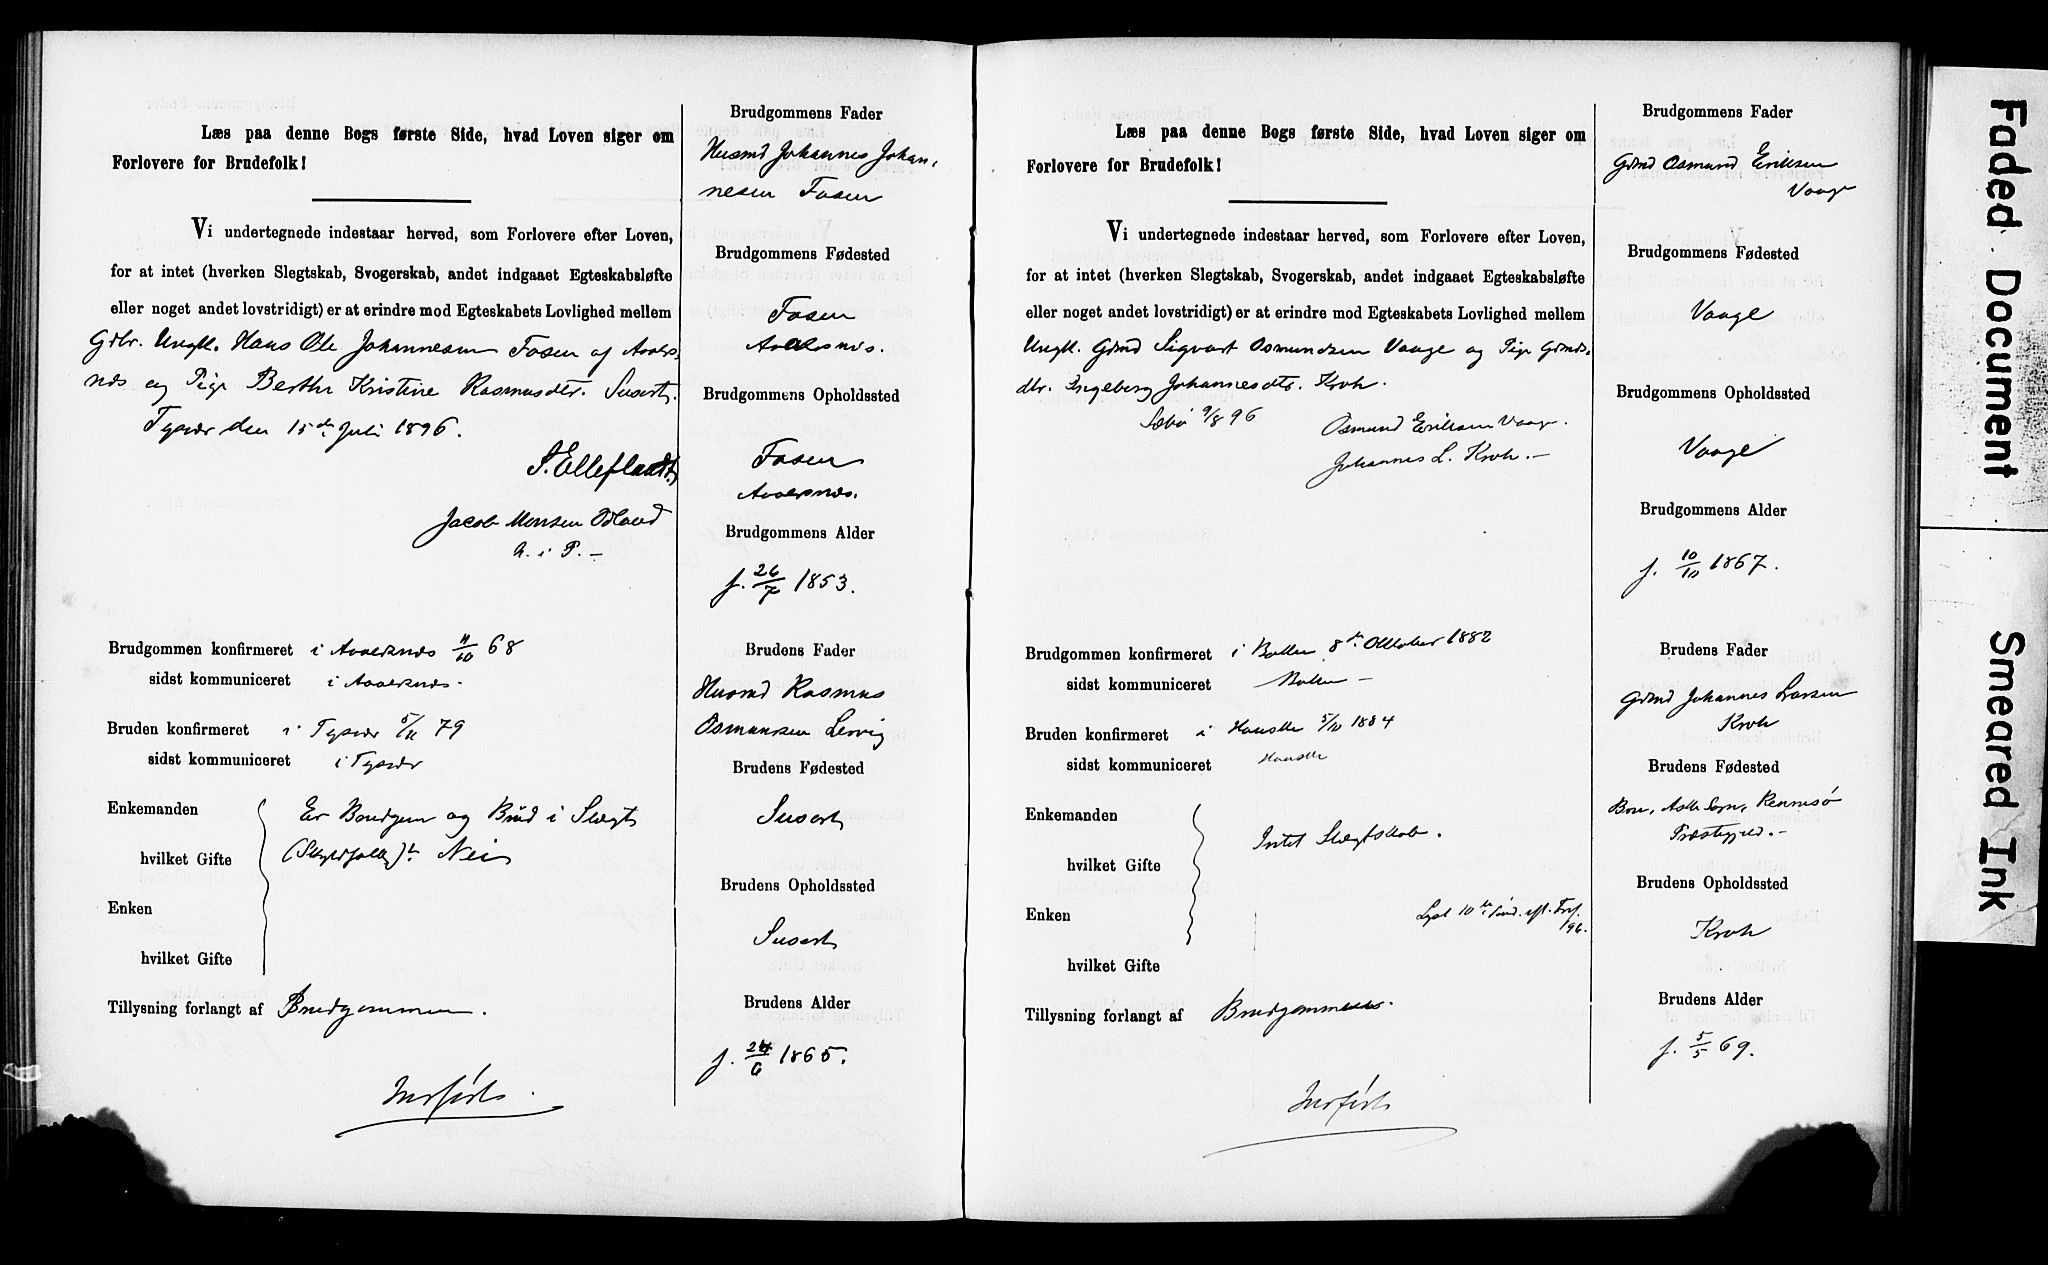 Læs paa denne Bogs første Side, hvad Loven siger om
Forlovere for Brudefolk!
Vi undertegnede indestaar herved, som Forlovere efter Loven,
for at intet (hverken Slegtskab, Svogerskab, andet indgaaet Egteskabsløfte
eller noget andet lovstridigt) er at erindre mod Egteskabets Lovlighed mellem
Gdbr. Ungk. Hans Ole Johannesen Fosen af Avalds-
nes og Pige Berthe Kristine Rasmusdtr. Susort.
Tysvær den 15de Juli 1896.
S. Elleflaadt.
Jacob Monsen Odland
m. i P. –
Brudgommen konfirmeret i Avaldsnes 11/10 68
sidst kommuniceret i Avaldsnes.
Bruden konfirmeret i Tysvær 5/11 79
sidst kommuniceret i Tysvær
Enkemanden
Er Brudgom og Brud i Slægt
hvilket Gifte
Nei
Enken
hvilket Gifte
Tillysning forlangt af Brudgommen.
Indført.
Brudgommens Fader
Husmd Johannes Johan-
nesen Fosen
Brudgommens Fødested
Fosen
Avaldsnes.
Brudgommens Opholdssted
Fosen
Avaldsnes.
Brudgommens Alder
f. 26/7 1853.
Brudens Fader
Husmd Rasmus
Osmundsen Lervig
Brudens Fødested
Susort
Brudens Opholdssted
Susort
Brudens Alder
f. 24/6 1865.
Læs paa denne Bogs første Side, hvad Loven siger om
Forlovere for Brudefolk!
Vi undertegnede indestaar herved, som Forlovere efter Loven,
for at intet (hverken Slegtskab, Svogerskab, andet indgaaet Egteskabsløfte
eller noget andet lovstridigt) er at erindre mod Egteskabets Lovlighed mellem
Ungk. Gdmd Sigvart Osmundsen Vaage og Pige Gdmds-
dtr. Ingeborg Johannesdtr. Kroh.
Sæbø 9/8 96
Osmund Eriksen Vaage.
Johannes L. Kroh. –
Brudgommen konfirmeret i Bokn 8de Oktober 1882
sidst kommuniceret Bokn –
Bruden konfirmeret i Hauske 5/10 1884
sidst kommuniceret Hauske
Enkemanden
Intet Slægtskab.
hvilket Gifte
Enken
Lyst 10de Sønd. eft. Tref.
/96.
hvilket Gifte
Tillysning forlangt af Brudgommen.
Indført
Brudgommens Fader
Gdmd Osmund Eriksen
Vaage
Brudgommens Fødested
Vaage
Brudgommens Opholdssted
Vaage
Brudgommens Alder
f. 10/10 1867.
Brudens Fader
Gdmd Johannes Larsen
Kroh
Brudens Fødested
Boe, Aske Sogn, Rennesø
Præstegjeld. –
Brudens Opholdssted
Kroh
Brudens Alder
f. 5/5 69.
Faded Document
Smeared Ink